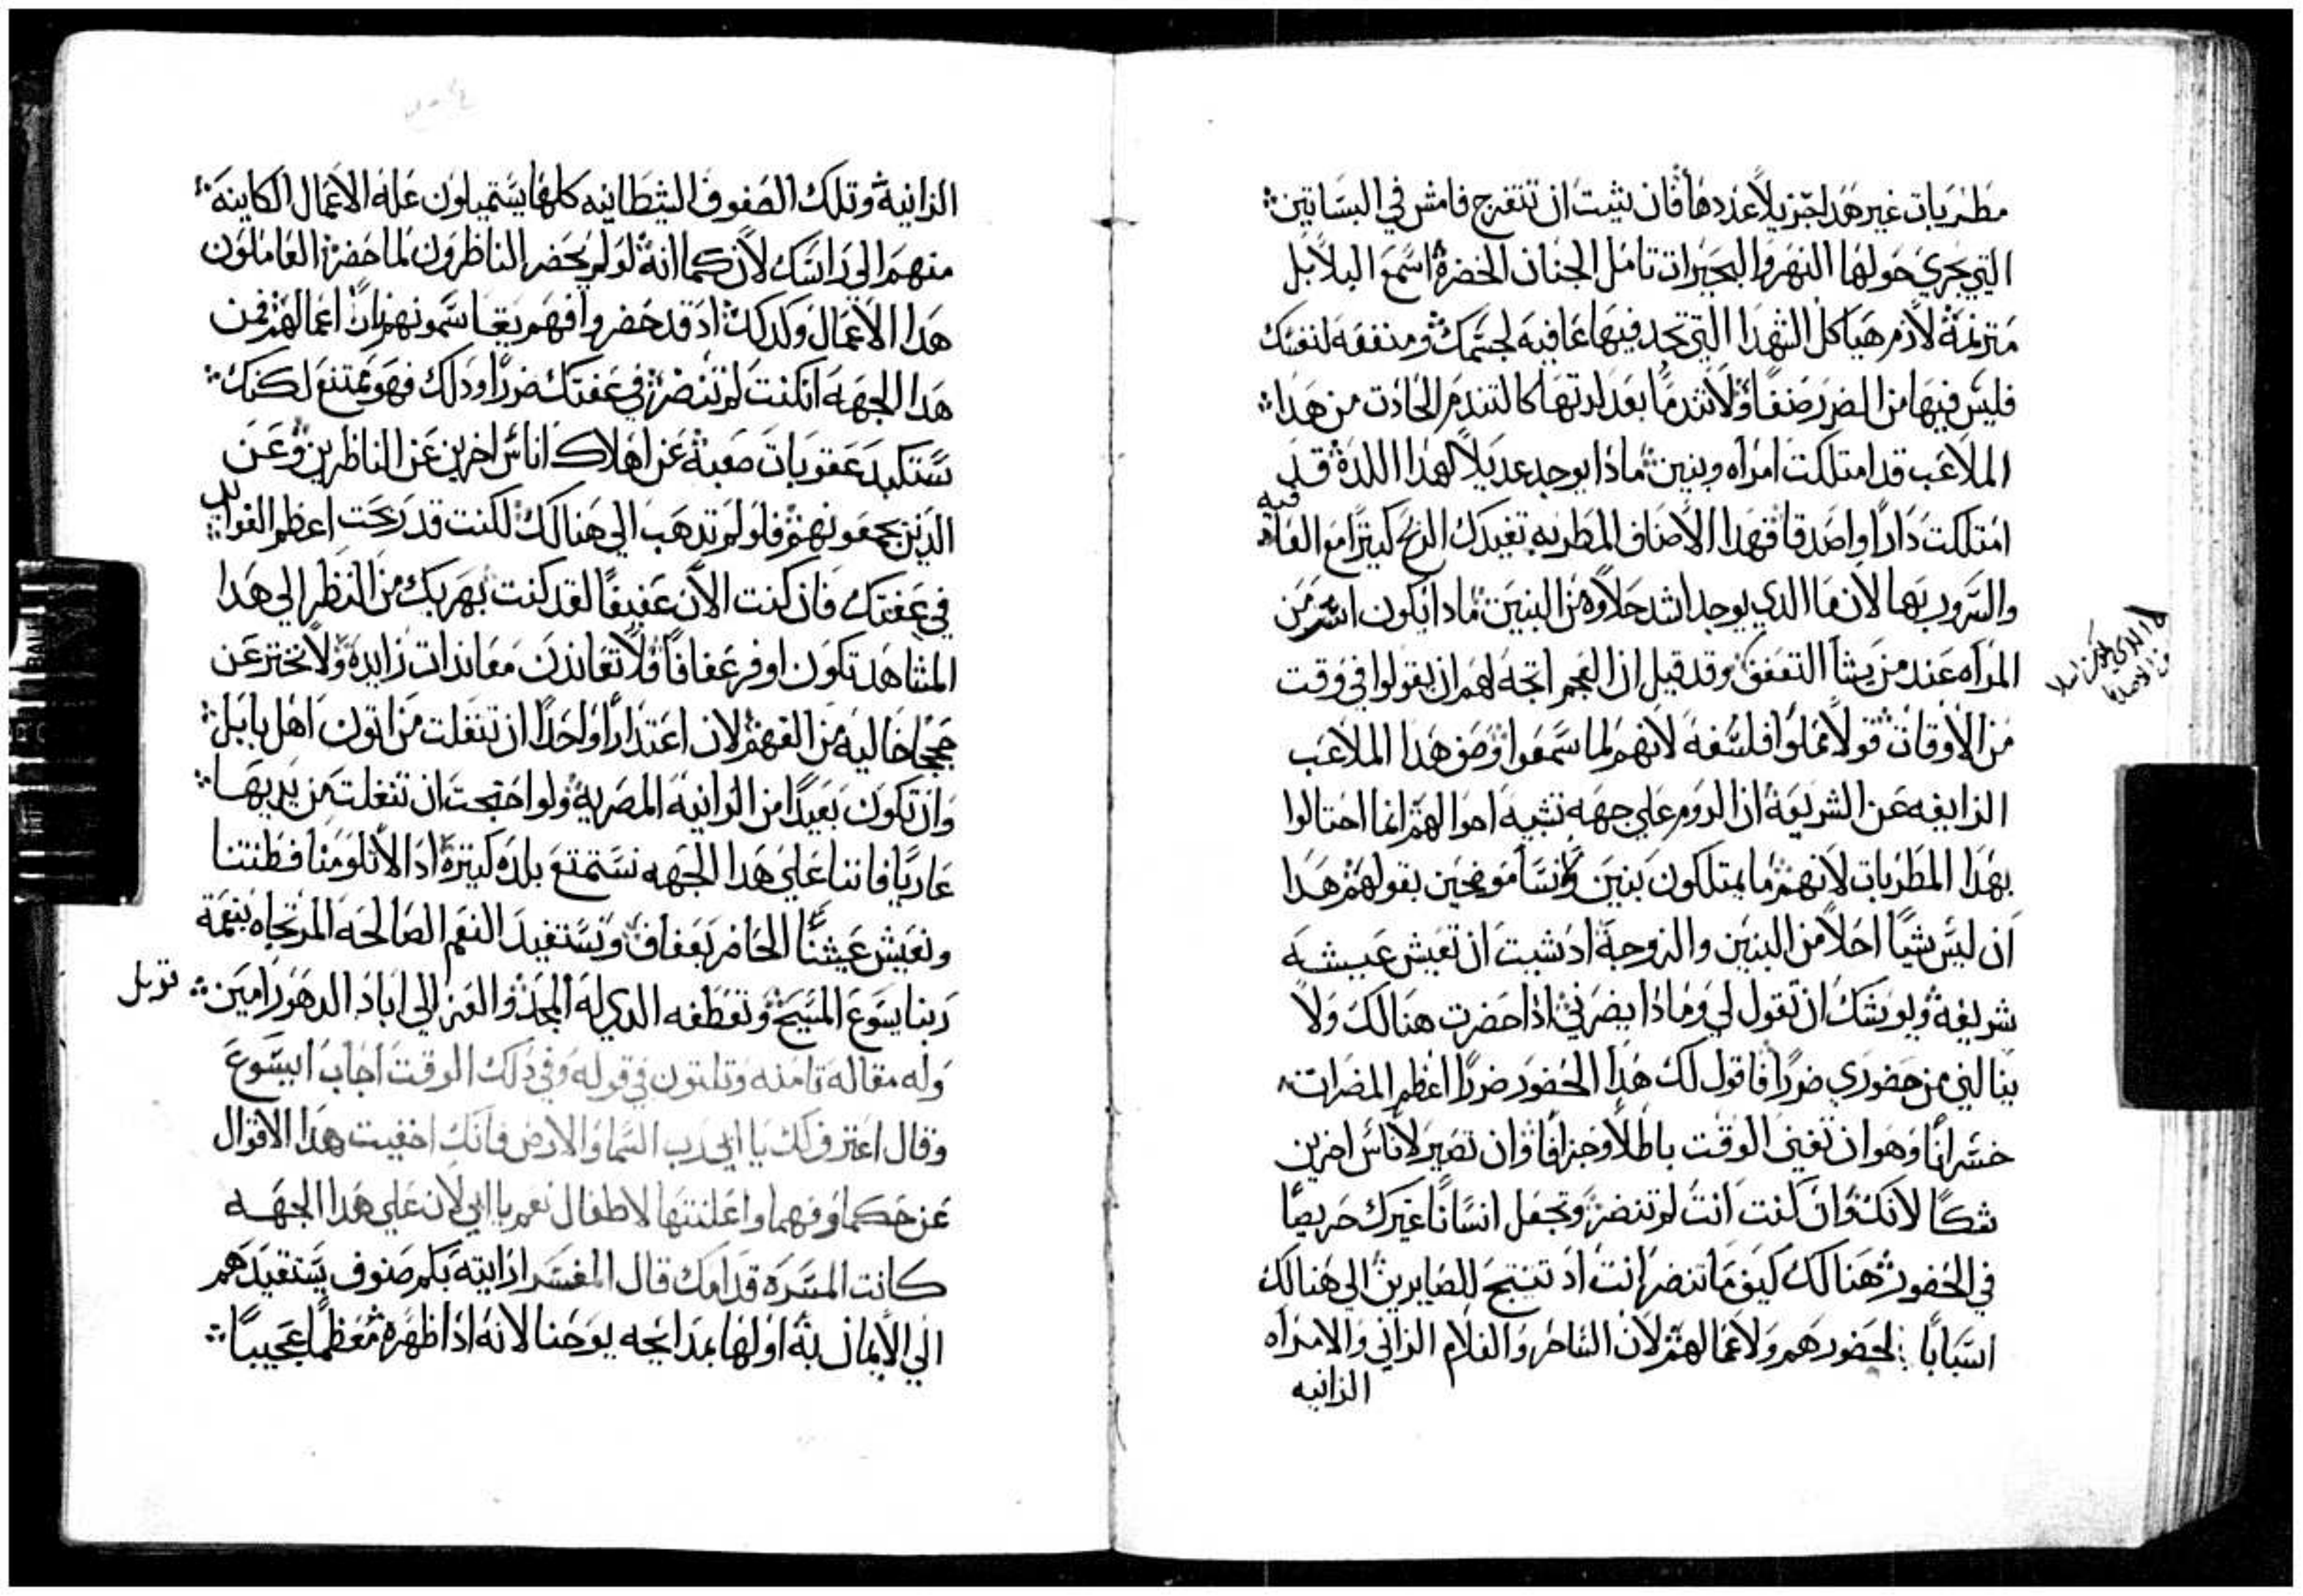 مطربات غير هذا جزيلاً عددها فان شيت ان تتفرج فامش في البساتين
التي تجري حولها النهر والبحيرات تامل الجنان الخضرة اسمع البلابل
مترنمة لازم هياكل الشهدا التي تجد فيها عافيه لجسمك ومنفعه لنفسك
فليس فيها من الضرر صنفاً ولا تندماً بعد لدتها كالتندم الحادت من هدا
الملاعب قد امتلكت امراه وبنين ماذا يوجد عديلاً لهدا اللدة قد
امتلكت داراً واصدقا فهدا الاصناف المطربه تفيدك الربح كتيراً مع العفه
فيه
والسرور بها لان ما الدي يوجد اشد حلاوه من البنين مادا يكون اسر من
المراه عند من يشا التعفف وقد قيل ان العجم اتجه لهم ان يقولوا في وقت
من الاوقات قولاً مملوا فلسفه لانهم لما سمعوا وصف هدا الملاعب
الزايغه عن الشريعة ان الروم علي جهه تشبه احوالهم انما احتالوا
بهدا المطربات لانهم ما يمتلكون بنين ونسا موضحين بقولهم هدا
ان ليس شياً احلا من البنين والزوجة اد شيت ان تعيش عيشه
شريفة ويوشك ان تقول لي وماذا يضرني اذا حضرت هنالك ولا
ينالني من حضوري ضرراً فاقول لك هدا الحضور ضرراً اعظم المضرات
خسراناً وهو ان تفني الوقت باطلاً وجزافاً وان تصير لاناس اخرين
شكاً لانك وان كنت انت لم تنضر وتجعل انساناً غيرك حريصاً
في الحضور هنالك كيف ما تنضر انت اد تنتج للصايرين الي هنالك
اسباباً لحضورهم ولاعمالهم لان الشاطر والغلام الزاني والامراه
الزانيه
الزانية وتلك الصفوف الشيطانيه كلها يستميلون علة الاعمال الكاينة
منهم الي راسك لان كما انه لو لم يحضر الناظرون لما حضر العاملون
هدا الاعمال وكدلك اد قد حضروا فهم يقاسمونهم نار اعمالهم فمن
هدا الجهه ان كنت لم تنضر في عفتك ضرراً ودلك فهو ممتنع لكنك
ستكبد عقوبات صعبة عن اهلاك اناس اخرين عن الناظرين وعن
الدين يجمعونهم فلو لم تدهب الي هنالك لكنت قد ربحت اعظم الفوايد
في عفتك فان كنت الان عفيفاً لقد كنت بهربك من النظر الي هدا
المشاهد تكون اوفر عفافاً فلا تعاندن معاندات زايدة ولا تخترعن
حججاً خاليه من الفهم لان اعتداراً واحداً ان تنفلت من اتون اهل بابل
وان تكون بعيداً من الزانيه المصرية ولو احتجت ان تنفلت من يديها
عارياً فاننا علي هدا الجهه نستمتع بلدة كتيرة اد لا تلومنا فطنتنا
ونعيش عيشنا الحاضر بعفاف ونستفيد النعم الصالحه المرتجاه بنعمة
ربنا يسوع المسيح وتعطفه الدي له المجد والعز الي اباد الدهور امين
قوبل
وله مقاله تامنه وتلتون في قوله وفي دلك الوقت اجاب ايسوع
وقال اعترف لك يا ابي رب السما والارض فانك اخفيت هدا الاقوال
عن حكما وفهما واعلنتها لاطفال نعم يا ابي لان علي هدا الجهه
كانت المسرة قدامك قال المفسر ارايته بكم صنوف يستقيدهم
الي الايمان به اولها بمدايحه يوحنا لانه ادا ظهره معظماً عجيباً